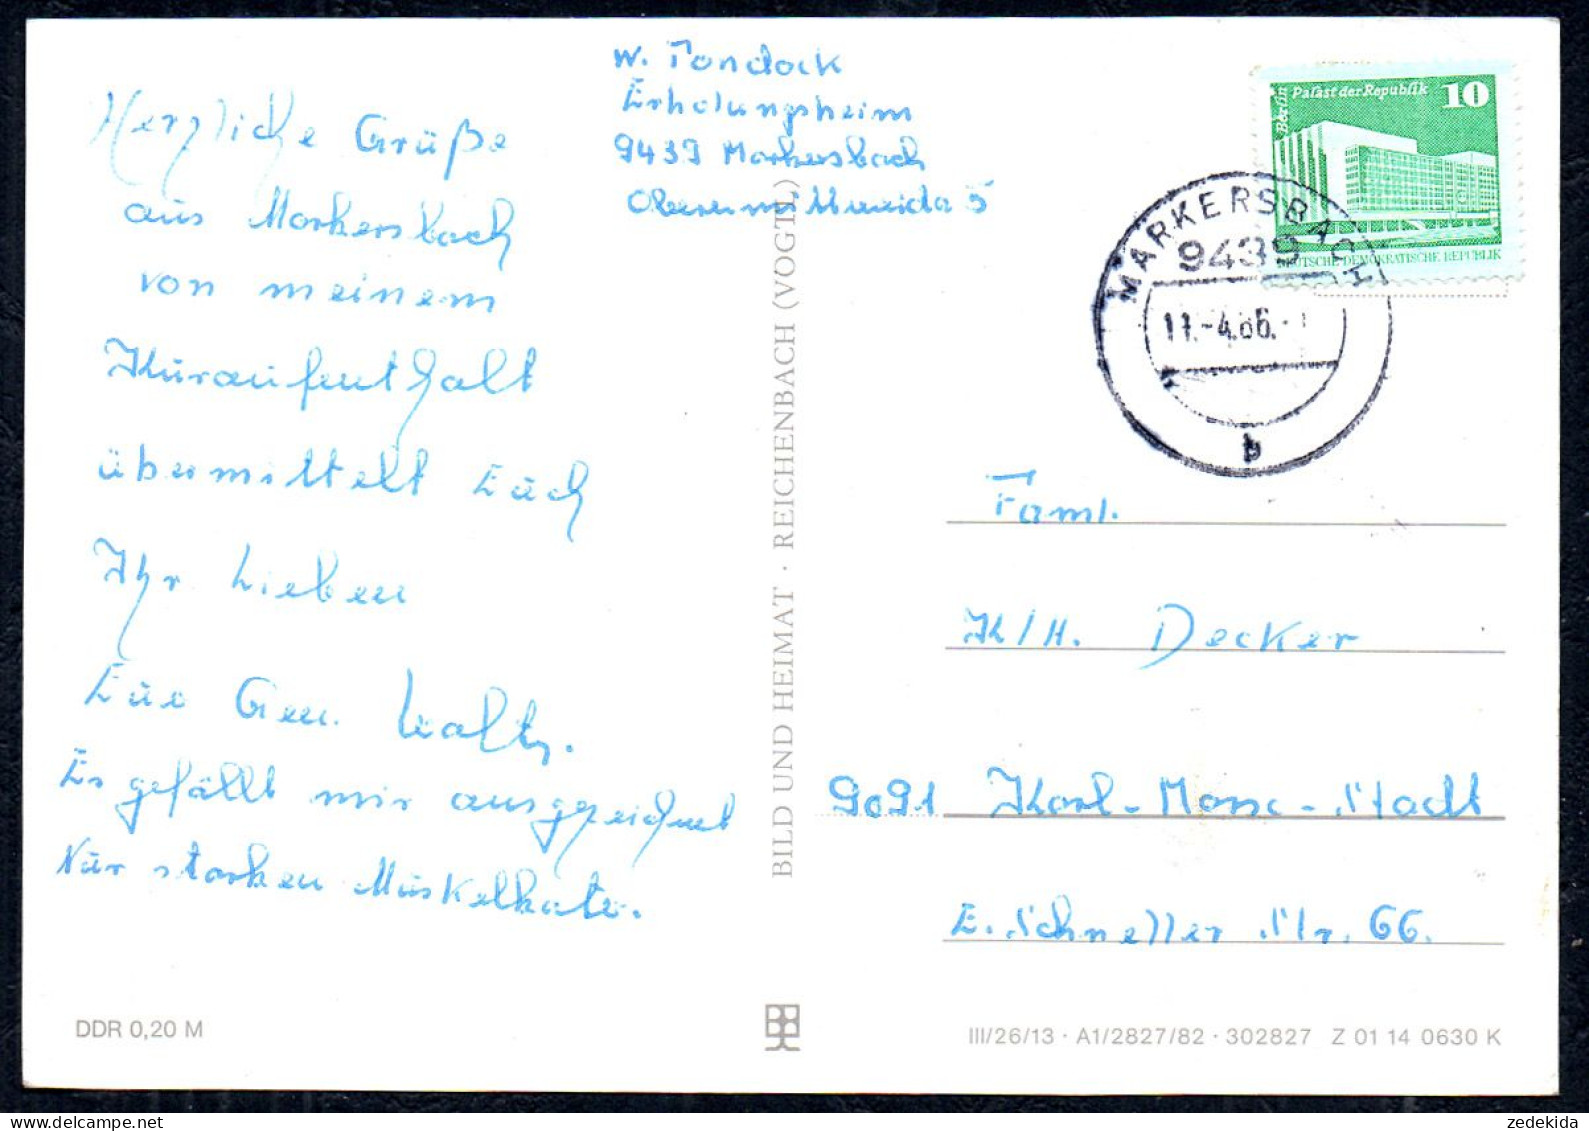 Herzliche Grüße
aus Markersbach
von meinem
Kuraufenthalt
übermittelt Euch
Ihr Lieben
Eue Gen. Walty.
Es gefällt mir ausgezeichnet
Nur starken Muskelkate.
W. Pondock
Erholungsheim
9439 Markersbach
Obermittweida 5
Berlin Palast der Republik 10
DEUTSCHE DEMOKRATISCHE REPUBLIK
MARKERSBACH
9439
11.-4.86.-
b
Faml.
K/H. Decker
9091 Karl-Marx-Stadt
E. Schneller Str. 66.
BILD UND HEIMAT · REICHENBACH (VOGTL)
DDR 0,20 M
III/26/13 · A1/2827/82 · 302827 Z 01 14 0630 K
zedekida